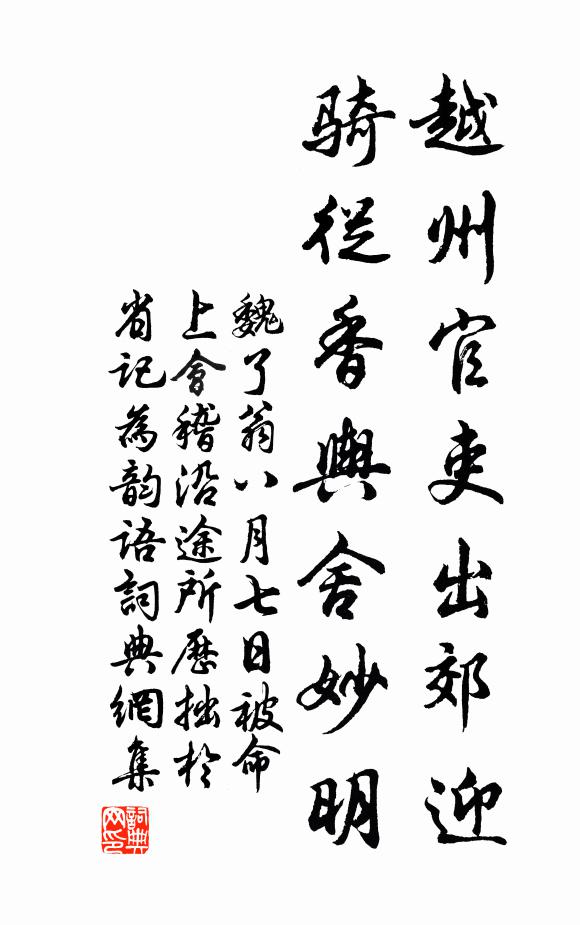 越州官吏出郊迎
騎從香輿舍妙明
魏了翁八月七日被命
上會稽沿途所歷拙於
省記為韵語詞典網集
詞典網印